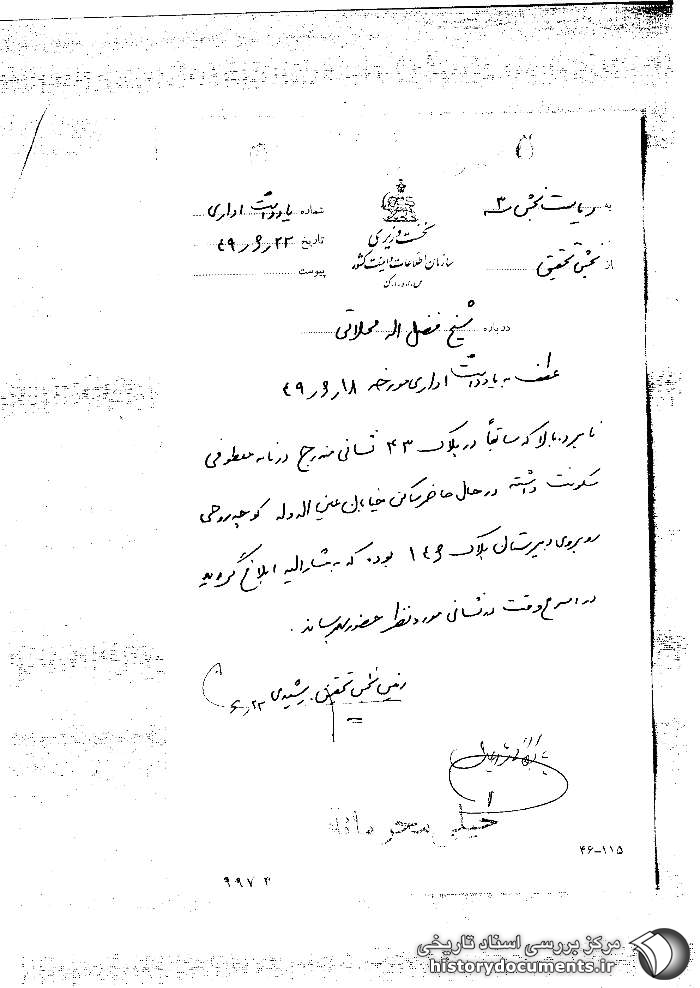 به ریاست بخش ۳
شماره یادداشت اداری
نخست وزیری
تاریخ ۴۹٫۶٫۲۲
از بخش تحقیق
سازمان اطلاعات و امنیت کشور
س.ا.و.ا.ک
پیوست
درباره شیخ فضل اله محلاتی
عطف به یادداشت اداری مورخه ۴۹٫۶٫۱۸
نامبرده بالا که سابقاً در پلاک ۴۳ نشانی مندرج در نامه معطوفی
سکونت داشته در حال حاضر ساکن خیابان عین الدوله کوچه روحی
روبروی دبیرستان پلاک ۱۴۶ بوده که به مشارالیه ابلاغ گردید
در اسرع وقت در نشانی مورد نظر حضور بهم رساند.
رئیس بخش تحقیق. رشیدی ۶٫۲۳
خیلی محرمانه
۴۶-۱۱۵
۹۹۷۲
مرکز بررسی اسناد تاریخی
historydocuments.ir